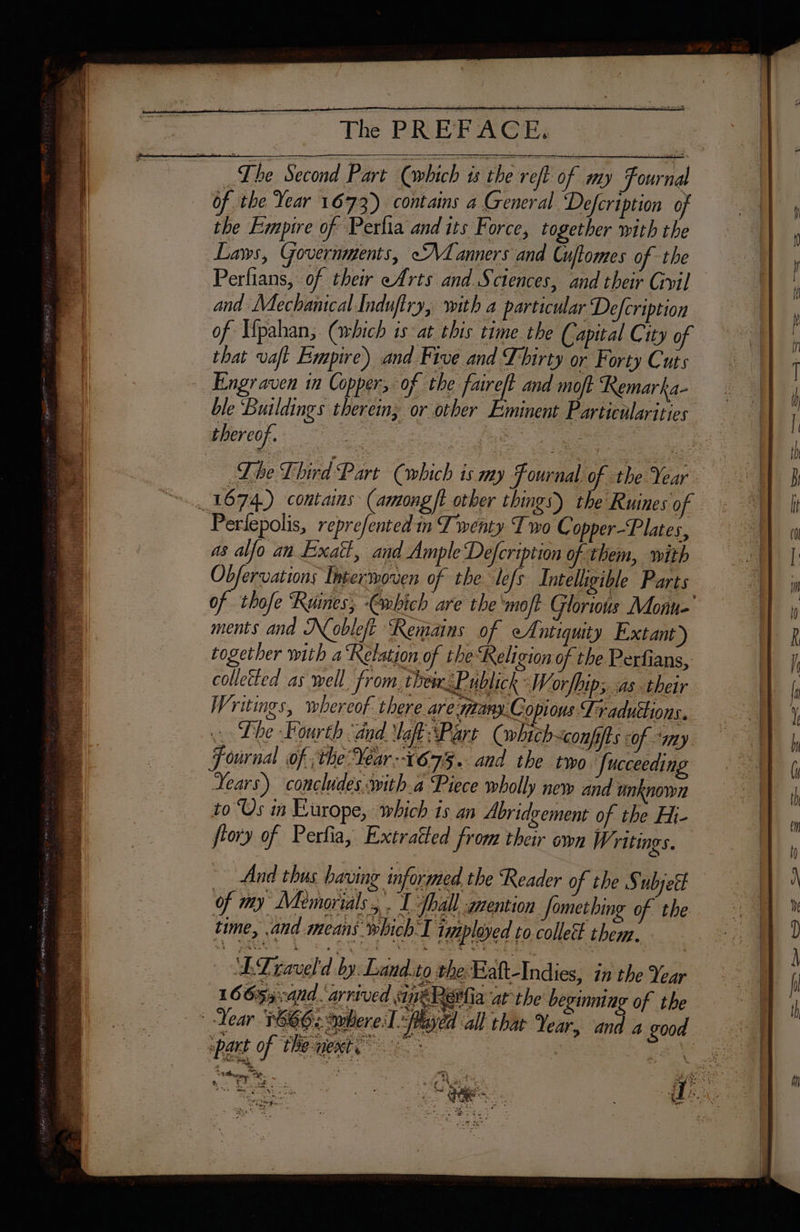 The PREFACE.
The Second Part (which is the rest of my Journal
of the Year 1673) contains a General Description of
the Empire of Persia and its Force, together with the
Laws, Governments, Manners and Customes of the
Persians, of their Arts and Sciences, and their Civil
and Mechanical Industry, with a particular Description
of Ispahan, (which is at this time the Capital City of
that vast Empire) and Five and Thirty or Forty Cuts
Engraven in Copper, of the fairest and most Remarka-
ble Buildings therein, or other Eminent Particularities
thereof.
The Third Part (which is my Journal of the Year
1674) contains (amongst other things) the Ruines of
Persepolis, represented in Twenty Two Copper-Plates,
as also an Exact, and Ample Description of them, with
Observations Interwoven of the less Intelligible Parts
of those Ruines, (which are the most Glorious Monu-
ments and Noblest Remains of Antiquity Extant)
together with a Relation of the Religion of the Persians,
collected as well from their Publick Worship, as their
Writings, whereof there are many Copious Traductions.
The Fourth and last Part (which consists of my
Journal of the Year 1675. and the two succeeding
Years) concludes with a Piece wholly new and unknown
to Us in Europe, which is an Abridgement of the Hi-
story of Persia, Extracted from their own Writings.
And thus having informed the Reader of the Subject
of my Memorials, I shall mention something of the
time, and means which I imployed to collect them.
I Travel'd by Land to the East-Indies, in the Year
1665, and arrived in Persia at the beginning of the
Year 1666: where I stayed all that Year, and a good
part of the next.